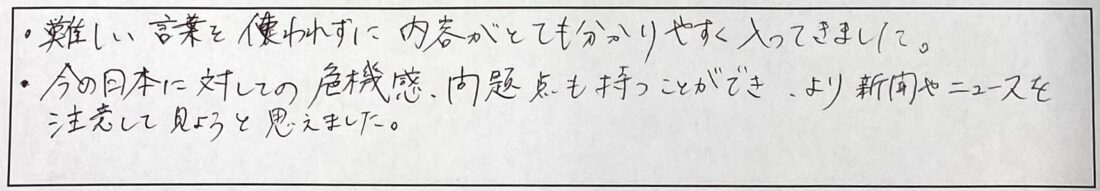 ・難しい言葉を使われずに内容がとても分かりやすく入ってきました。
・今の日本に対しての危機感、問題点も持つことができ、より新聞やニュースを
注意して見ようと思えました。